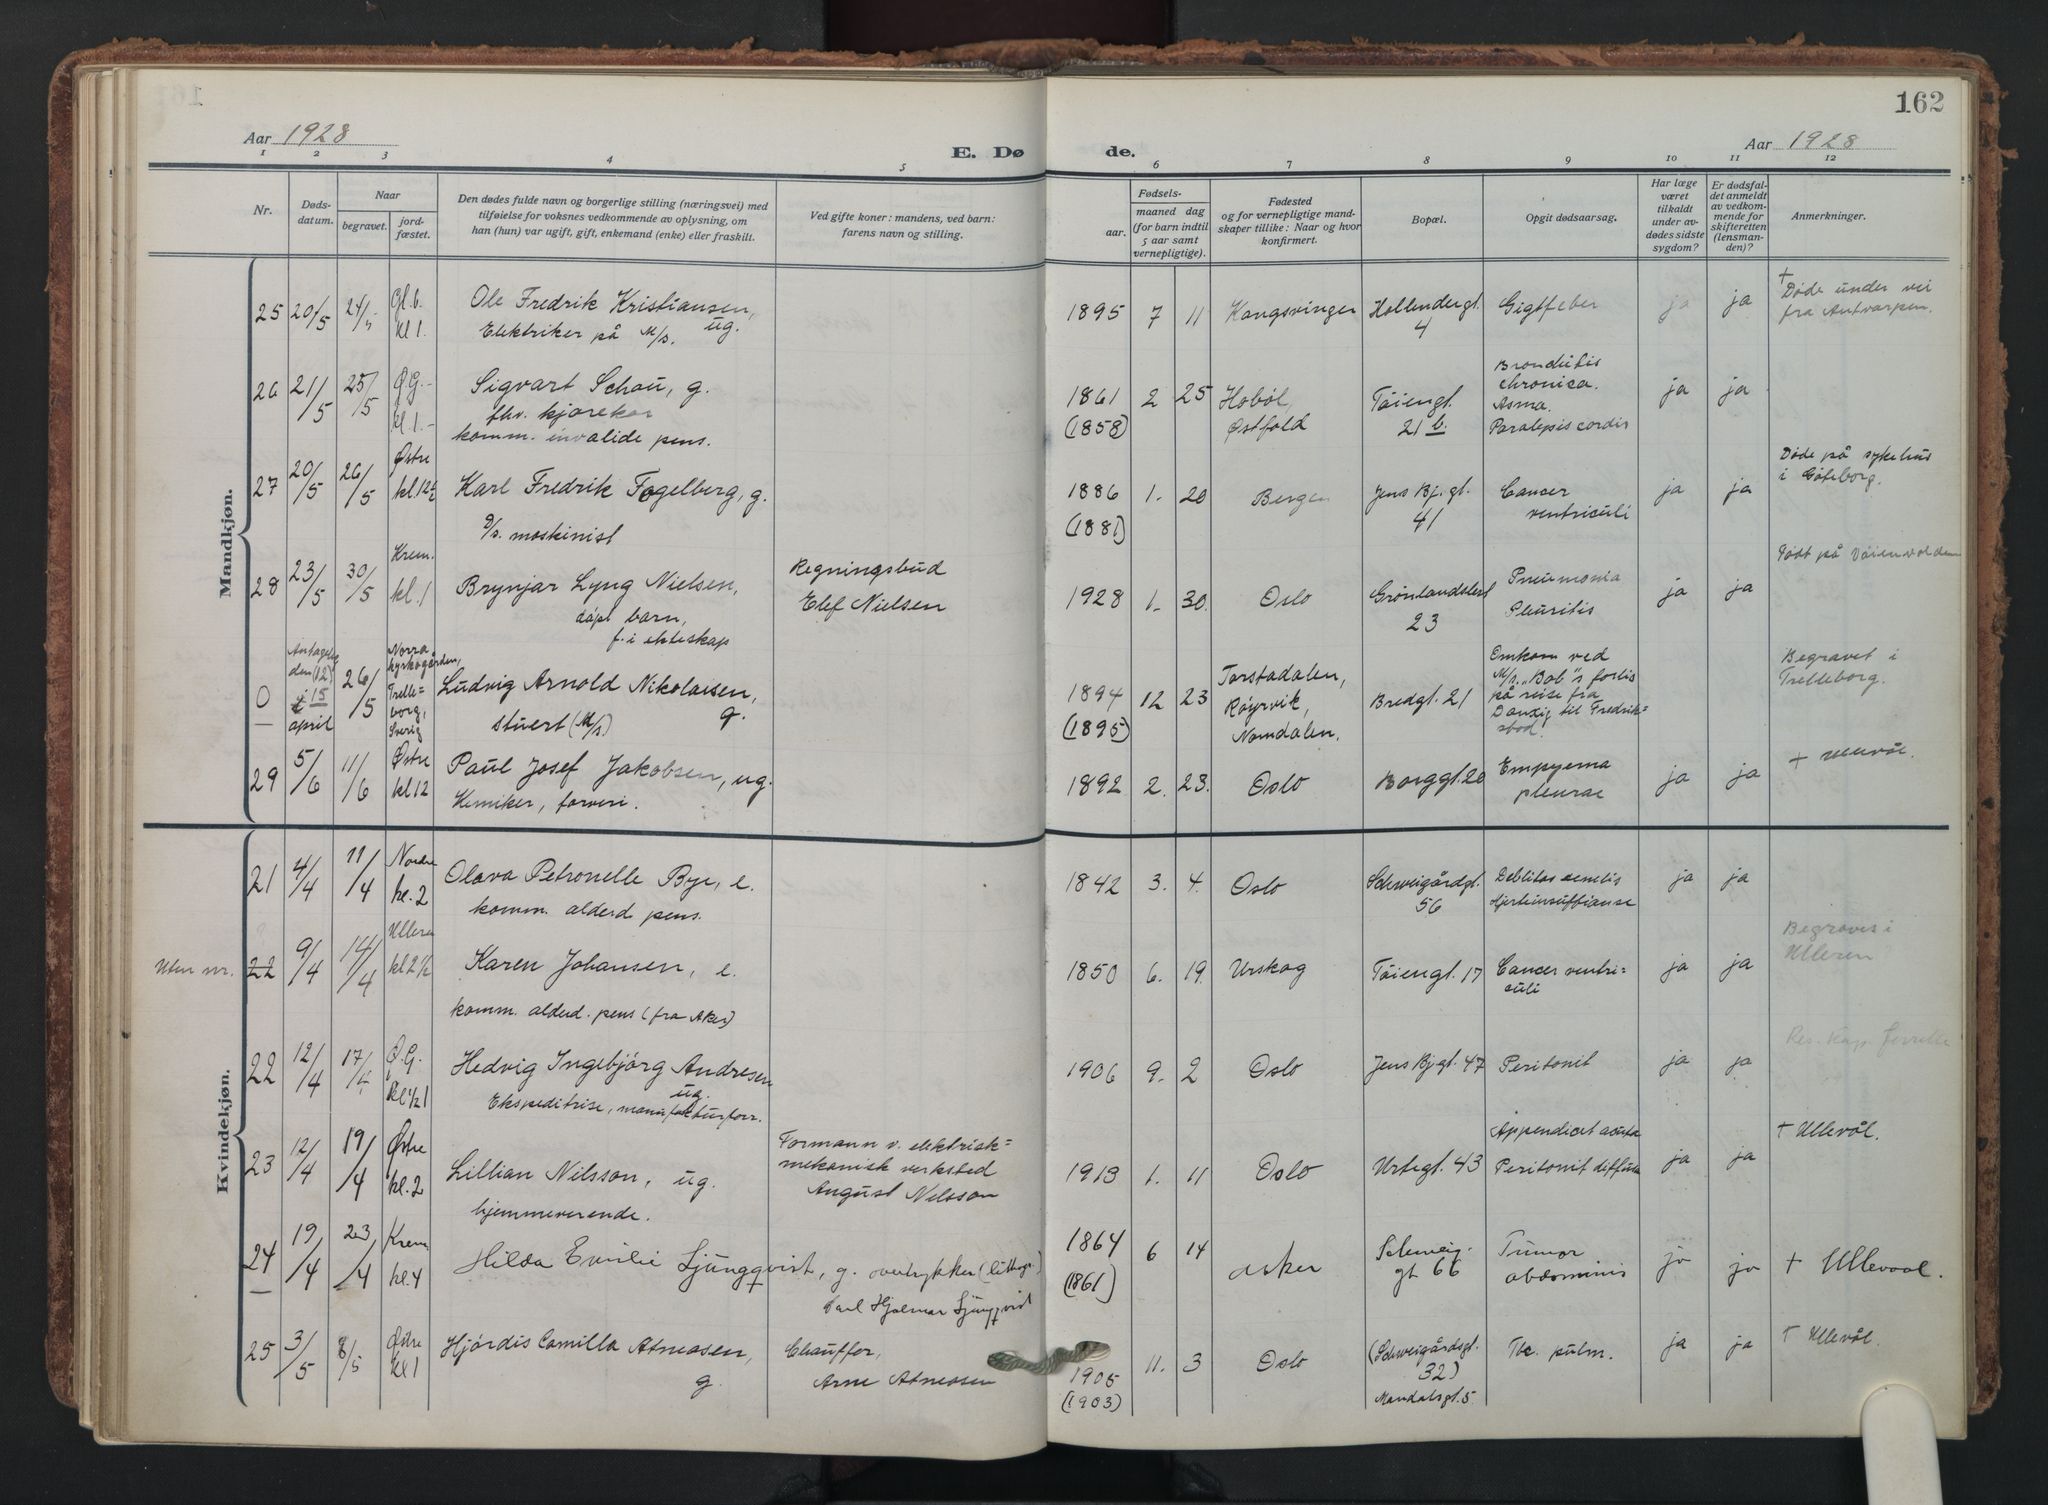 162
Aar 1928
E. Dø
de.
Aar 1928
1 2 3 4 5 6 7 8 9 10 11 12
Nr.
Døds-
datum.
Naar
begravet.
jord-
fæstet.
Den dødes fulde navn og borgerlige stilling (næringsvei) med
tilføielse for voksnes vedkommende av oplysning, om
han (hun) var ugift, gift, enkemand (enke) eller fraskilt.
Ved gifte koner: mandens, ved barn:
farens navn og stilling.
Fødsels-
aar.
maaned dag
(for barn indtil
5 aar samt
vernepligtige).
Fødested
og for vernepligtige mand-
skaper tillike: Naar og hvor
konfirmert.
Bopæl.
Opgit dødsaarsag.
Har læge
været
tilkaldt
under av-
dødes sidste
sygdom?
Er dødsfal-
det anmeldt
av vedkom-
mende for
skifteretten
(lensman-
den)?
Anmerkninger.
Mandkjøn.
25 20/5 24/5 Gl. b.
kl 1.
Ole Fredrik Kristiansen,
Elektriker på M/s. ug.
1895 7 11 Kongsvinger Hollendergt.
4
Gigtfeber ja ja
+
Døde under vei
fra Antvarpen.
26 21/5 25/5 Ø.G.-
kl. 1.-
Sigvart Schou, g.
fhv. kjørekar
komm. invalide pens.
1861
(1858)
2 25 Hobøl,
Østfold
Tøiengt.
21 b.
chronica.
Asma.
cordis
ja ja
27 20/5 26/5 Østre
Karl Fredrik Fogelberg, g.
maskinist
1886
(1881)
1. 20 Bergen Jens Bj. gt.
41
Cancer
ventriculi
ja ja
Døde på sykehus
i Göteborg.
28 23/5 30/5 Krem.
kl. 1
Brynjar Lyng Nielsen,
døpt barn,
f. i ekteskap
Regningsbud
Elef Nielsen
1928 1. 30. Oslo
23
Pneumonia
Pleuritis
ja ja
Født på
0
den (12)
15
april
26/5
Norra
kyrkogården,
Trelle=
borg,
Sverig
Ludvig Arnold Nikolaisen,
stuert (M/s) g.
1894
(1895)
12 23 Torstadalen,
Røyrvik,
Namdalen.
Bredgt. 21
Omkom ved
M/s. "Bob"s forlis
på reise fra
Danzig til Fredrik=
stad.
Begravet i
Trelleborg.
29 5/6 11/6 Østre
kl 12
Paul Josef Jakobsen, ug.
Kemiker,
1892 2. 23. Oslo Borggt. 20
Empyema
pleurae
ja ja + Ullevål.
Kvindekjøn.
21 4/4 11/4 Nordre
kl. 2
Olava Petronelle Bye, e.
komm. alderd pens.
1842 3. 4. Oslo Schweigårdgt.
56
ja ja
Uten nr. 22 9/4 14/4 Ulleren
kl 2 1/2
Karen Johansen, e.
komm. alderd. pens (fra Aker)
1850 6. 19. Urskog Tøiengt. 17 Cancer ventri=
culi
ja ja
Begraves i
Ulleren
22 12/4 17/4 Ø.G.
Hedvig Ingebjørg Andresen
ug.
Ekspeditrise, manufakturforr.
1906 9. 2 Oslo Jens Bj gt. 47 Peritonit ja ja
Res. Kap.
23 12/4 19/4 Østre
kl. 2
Lillian Nilsson, ug.
hjemmeverende.
Formann v. elektrisk=
mekanisk verksted
August Nilsson
1913 1. 11 Oslo Urtegt. 43
Appendicit acuta
Peritonit diffusa
ja ja + Ullevål.
24 19/4 23/4 Krem
kl. 4
Hilda Emilie Ljungqvist, g. overtrykker
Carl Hjalmar Ljungqvist
1864
(1861)
6 14 Aker Schweig.
gt 66
Tumor
abdominis
ja ja + Ullevaal.
25 3/5 8/5 Østre
kl 1
Hjördis Camilla Atneosen,
g.
Chauffør,
Arne Atneosen
1905
(1903)
11. 3 Oslo (Schweigårdsgt.
32)
Mandalsgt. 5
Tbc. pulm. ja ja + Ullevål.